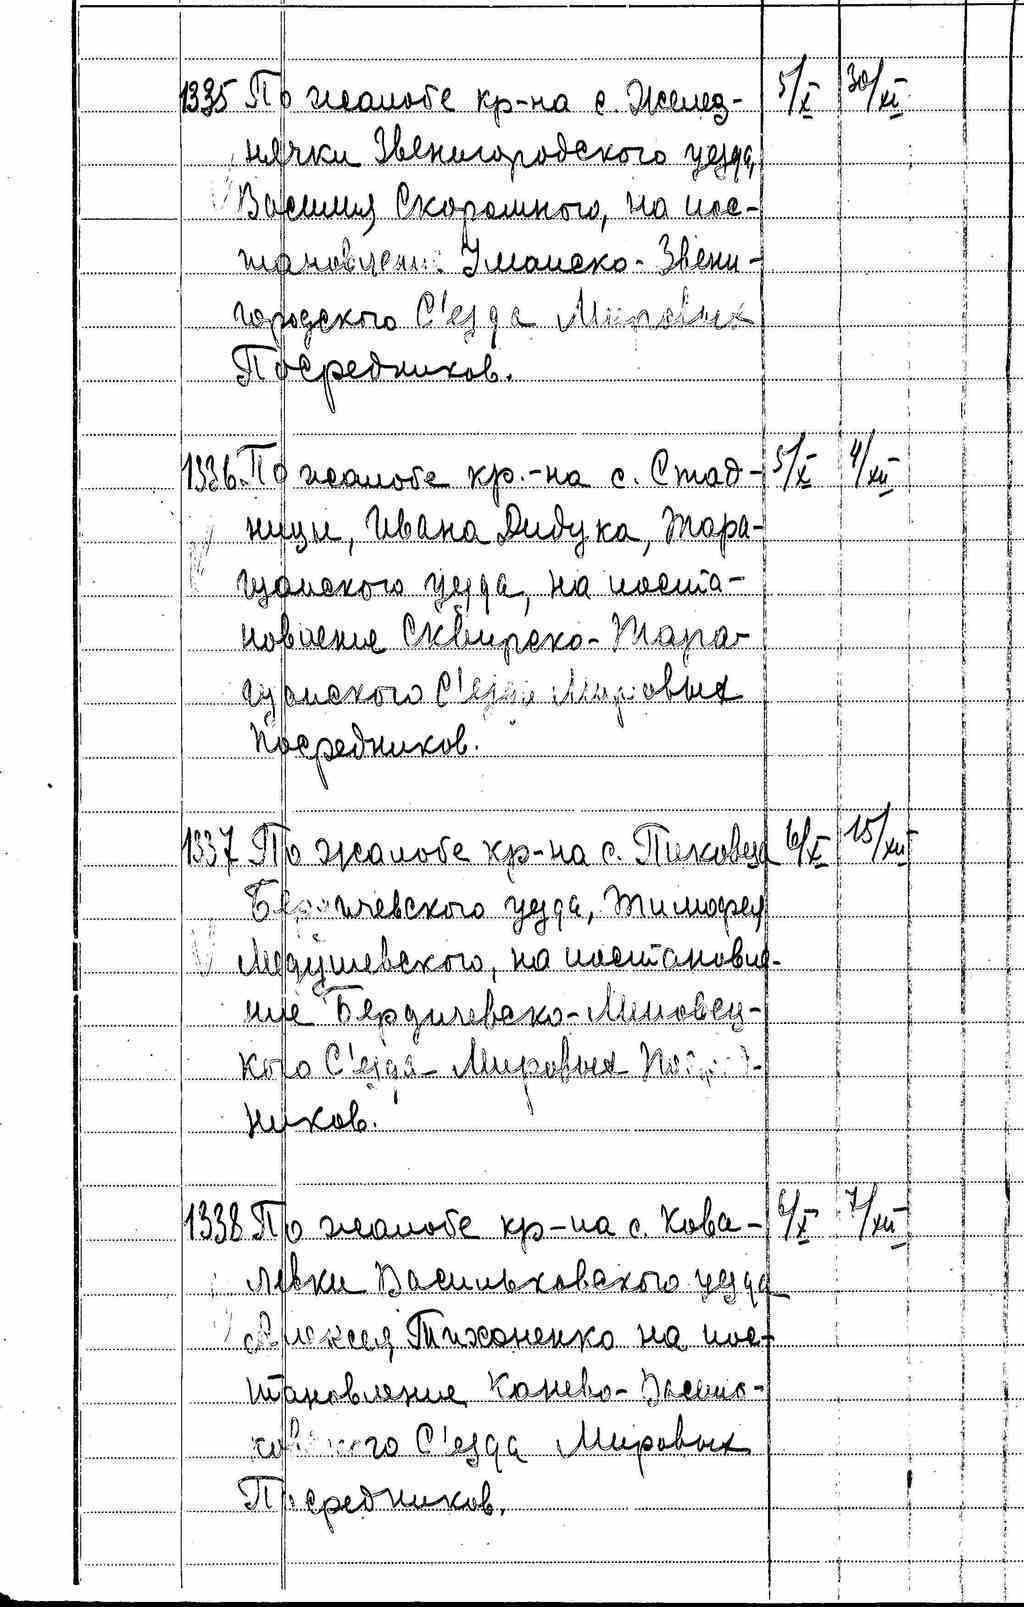 1335 По жалобе кр-на с. Желез- 5/X 30/XI
нячки Звенигородского уезда,
Василия Скоромного, на пос-
тановление Уманско-Звени-
городского С'езда Мировых
Посредников.
1336. По жалобе кр.-на с. Стад- 5/X 4/XII
ницы, Ивана Дидука, Тара-
щанского уезда, на поста-
новление Сквирско-Тара-
щанского С'езда Мировых
Посредников.
1337 По жалобе кр-на с. Пиковца 6/X 15/XII
Бердичевского уезда, Тимофея
Медушевского, на постановле-
ние Бердичевско-Липовец-
кого С'езда Мировых Посред-
ников.
1338 По жалобе кр-на с. Кова- 6/X 7/XII
левки Васильковского уезда
Алексея Тихоненко на пос-
тановление Канево-Василь-
ковского С'езда Мировых
Посредников.